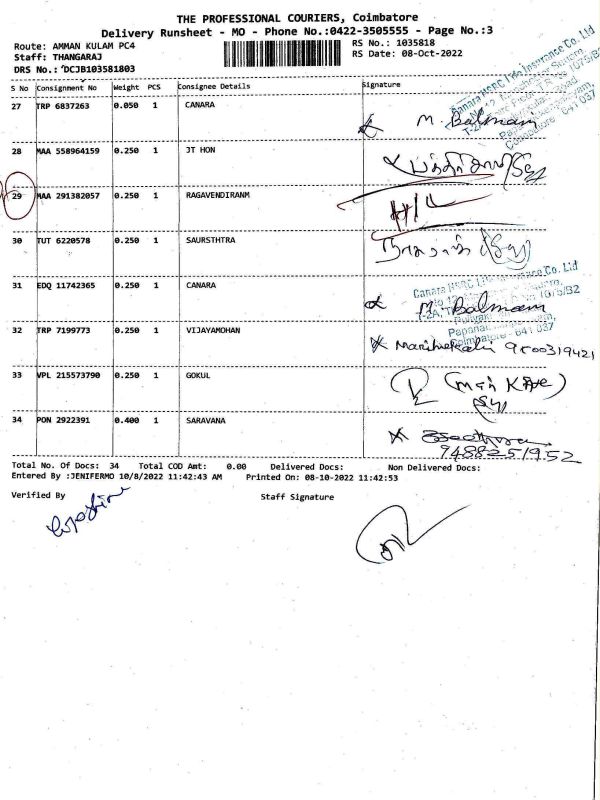 THE PROFESSIONAL COURIERS, Coimbatore
Delivery Runsheet - MO - Phone No.:0422-3505555 - Page No.:3
Route: AMMAN KULAM PC4
RS No.: 1035818
Staff: THANGARAJ
RS Date: 08-Oct-2022
DRS No.: DCJB103581803
S No Consignment No Weight PCS Consignee Details Signature
27 TRP 6837263 0.050 1 CANARA M. Balmam
28 MAA 558964159 0.250 1 JT HON
29 MAA 291382057 0.250 1 RAGAVENDIRANM H/L
30 TUT 6220578 0.250 1 SAURSTHTRA
Canara HSBC Life Insurance Co. Ltd
31 EDQ 11742365 0.250 1 CANARA M. Balmam
32 TRP 7199773 0.250 1 VIJAYAMOHAN 9500319421
33 VPL 215573790 0.250 1 GOKUL
34 PON 2922391 0.400 1 SARAVANA
9488251952
Total No. Of Docs: 34 Total COD Amt: 0.00 Delivered Docs: Non Delivered Docs:
Entered By :JENIFERMO 10/8/2022 11:42:43 AM Printed On: 08-10-2022 11:42:53
Verified By Staff Signature